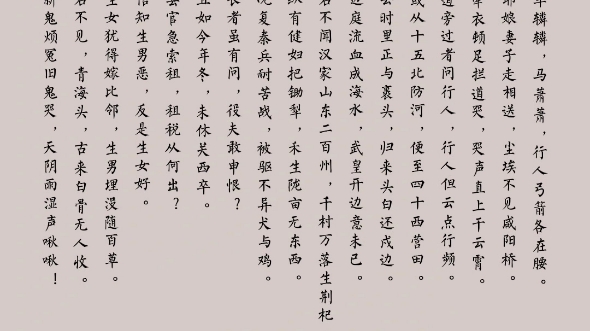 车辚辚，马萧萧，行人弓箭各在腰。
耶娘妻子走相送，尘埃不见咸阳桥。
牵衣顿足拦道哭，哭声直上干云霄。
道旁过者问行人，行人但云点行频。
或从十五北防河，便至四十西营田。
去时里正与裹头，归来头白还戍边。
边庭流血成海水，武皇开边意未已。
君不闻汉家山东二百州，千村万落生荆杞
纵有健妇把锄犁，禾生陇亩无东西。
况复秦兵耐苦战，被驱不异犬与鸡。
长者虽有问，役夫敢申恨？
且如今年冬，未休关西卒。
县官急索租，租税从何出？
信知生男恶，反是生女好。
生女犹得嫁比邻，生男埋没随百草。
君不见，青海头，古来白骨无人收。
新鬼烦冤旧鬼哭，天阴雨湿声啾啾！